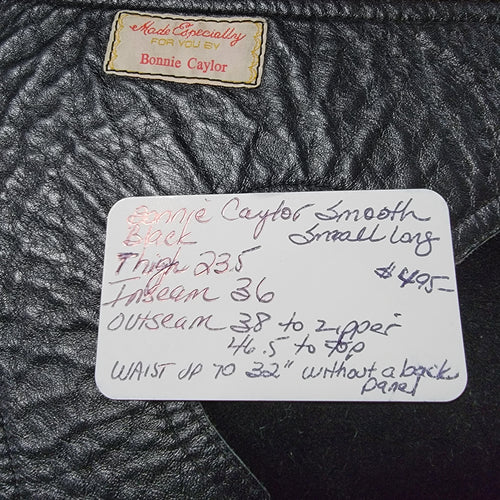 Made Especially
FOR YOU BY
Bonnie Caylor
Bonnie Caylor Smooth
Black Small Long
Thigh 23.5 $495-
Inseam 36
Outseam 38 to zipper
46.5 to top
WAIST UP TO 32" without a back
panel